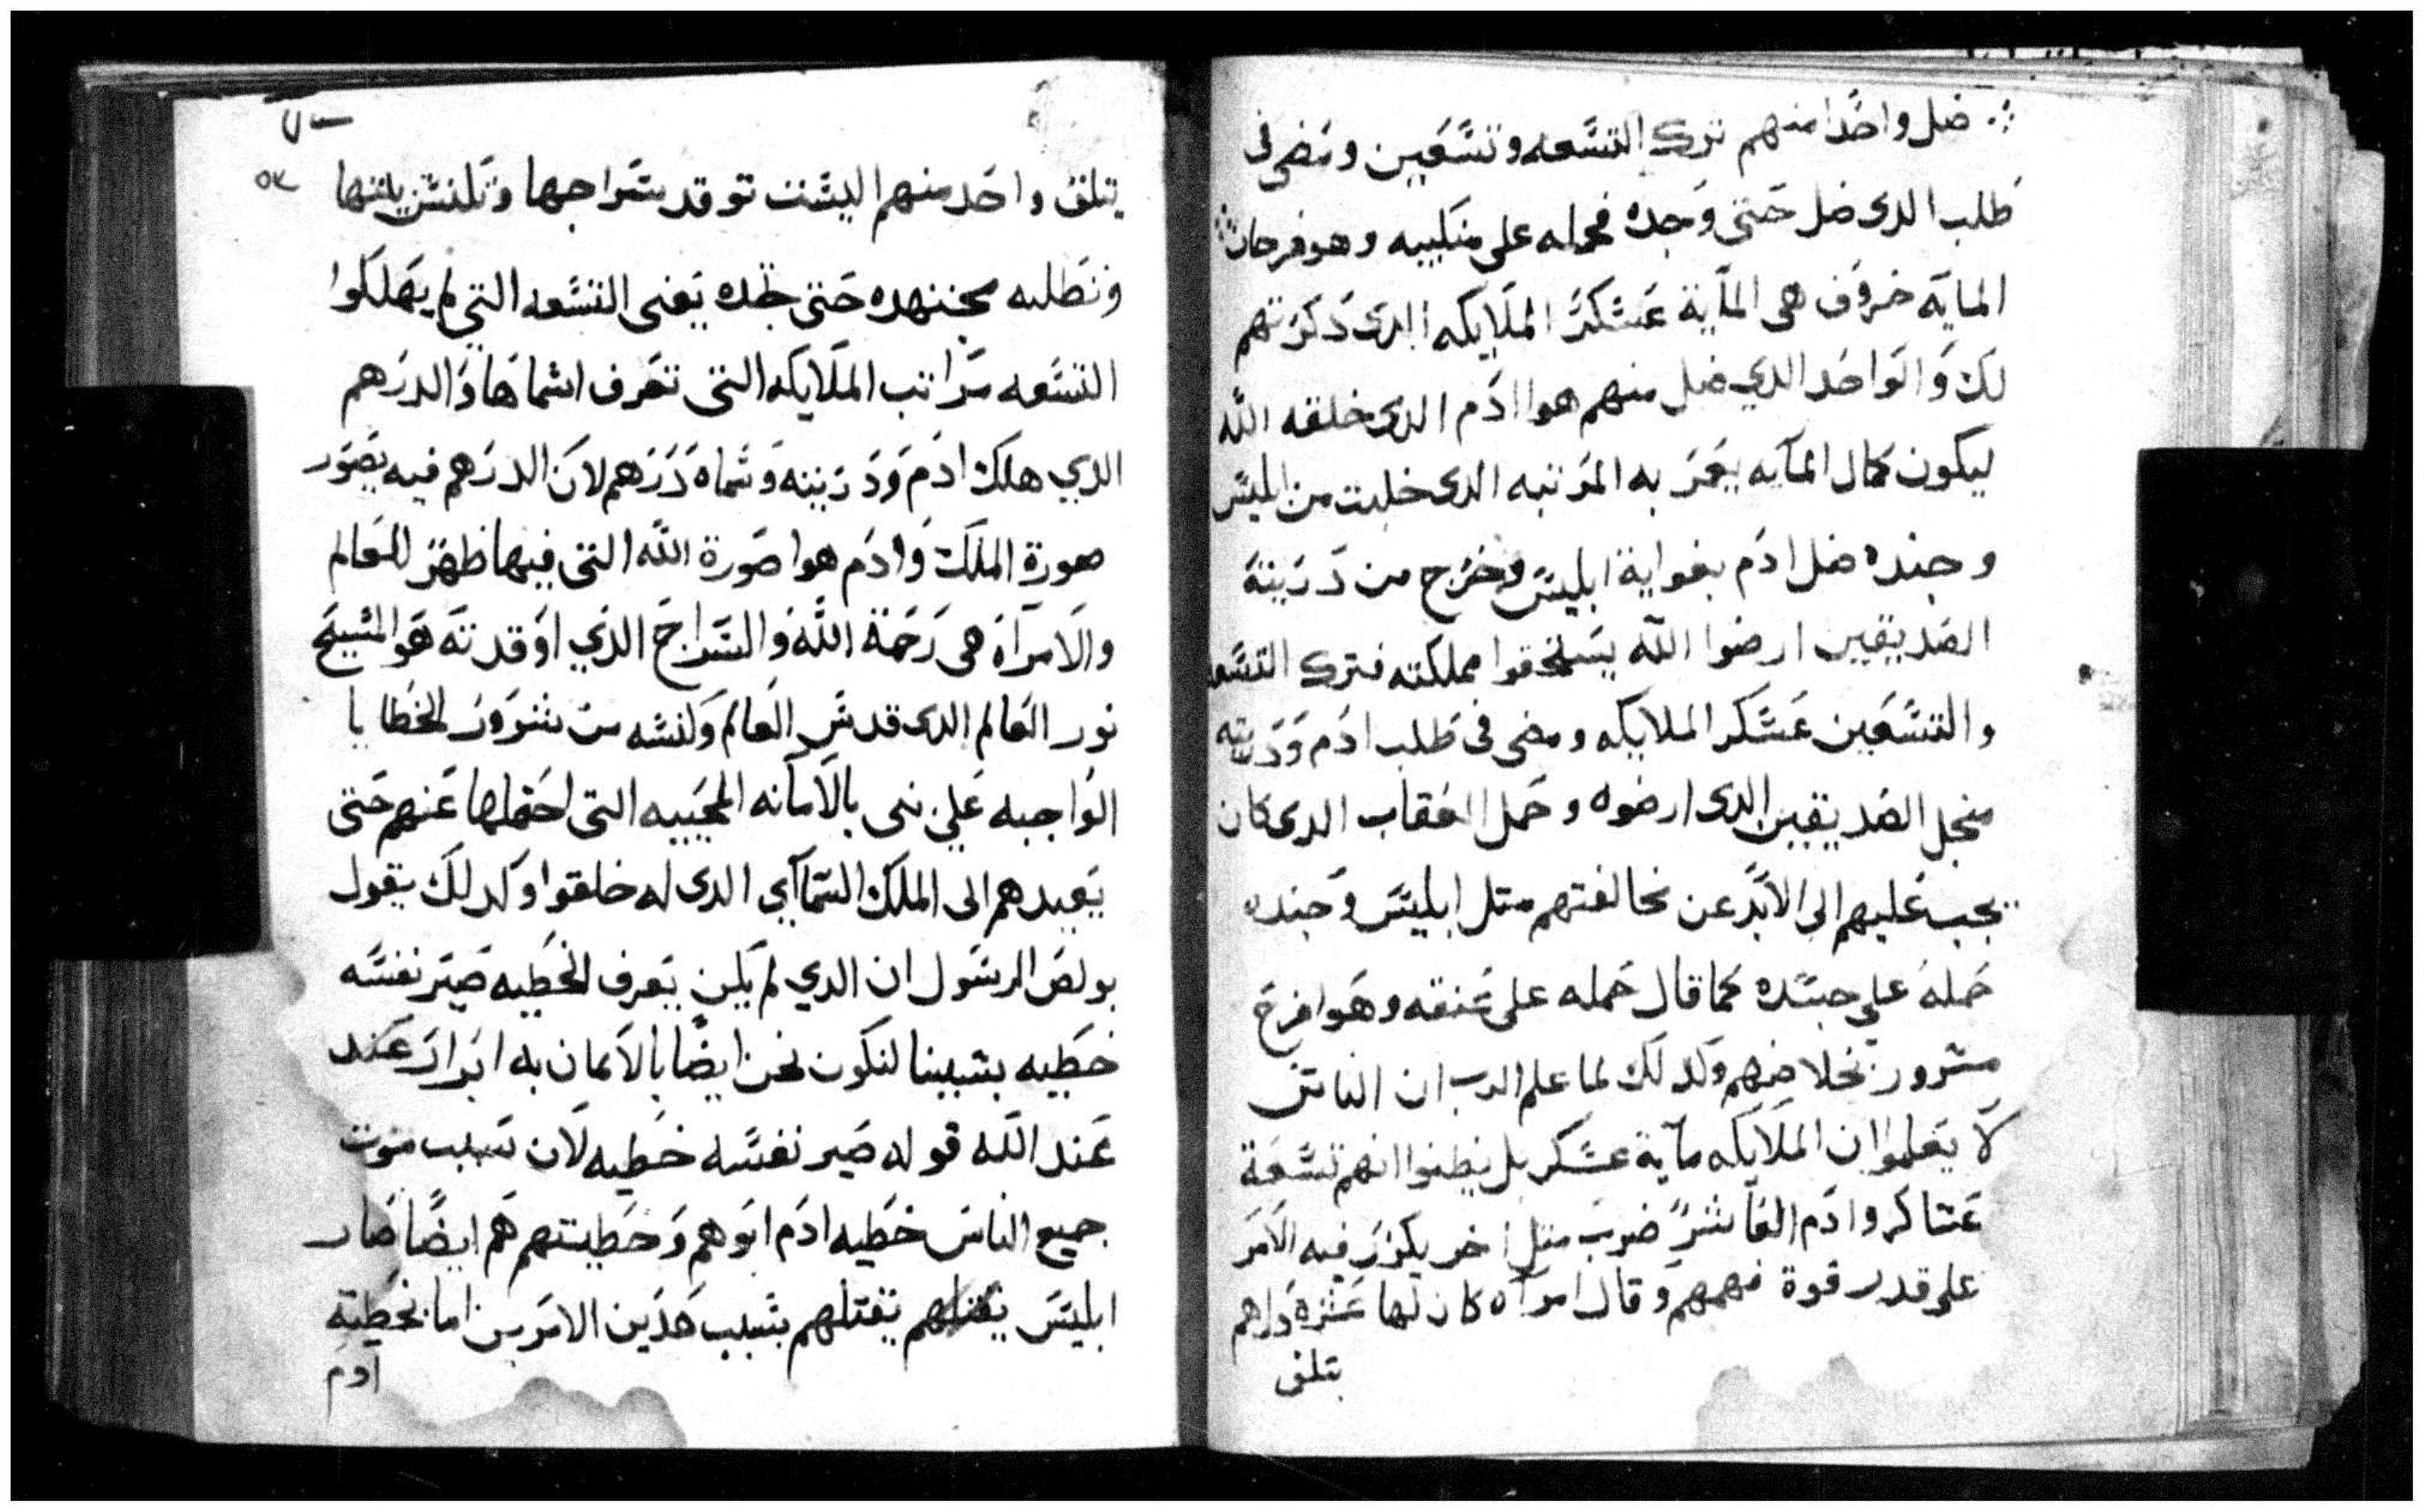 ضل واحدا منهم ترك التسعه وتسعين ومضى فى
طلب الدى ضل حتى وجده فحمله على منكبيه وهو فرحان
المايه خروف هى المآية عسكر الملايكه الدى دكرتهم
لك والواحد الدي ضل منهم هوا ادم الدى خلقه الله
ليكون كمال المآيه يعمر به المرتبه الدى خليت من ابليس
وجنده ضل ادم بغواية ابليس وخرج من دريته
الصديقين ارضوا الله يستحقوا مملكته فترك التسعه
والتسعين عسكر الملايكه ومضى فى طلب ادم ودريته
منجل الصديقين الدى ارضوه وحمل العقاب الدى كان
يجب عليهم الى الابد عن مخالفتهم متل ابليس وجنده
حمله على جسده كما قال حمله على عنقه وهوا فرح
مسرور بخلاصهم وكدلك لما علم الرب ان الناس
لا يعلموا ان الملايكه مآية عسكر بل يظنوا انهم تسعة
عساكر وادم العاشر ضرب متل اخر يكرر فيه الامر
على قدر قوة فهمهم وقال امرآه كان لها عشره دراهم
يتلف
٥٧
يتلف واحد منهم اليست توقد سراجها وتكنس بيتها
وتطلبه مجتهده حتى تجده يعنى التسعه التي لم يهلكوا
التسعه مراتب الملايكه التى تعرف اسماها والدرهم
الدي هلك ادم ودريته وسماه درهم لان الدرهم فيه يصور
صورة الملك وادم هوا صورة الله التى فيها ظهر للعالم
والامرآه هى رحمة الله والسراج الدي اوقدته هو المسيح
نور العالم الدى قدس العالم وكنسه من شرور الخطايا
الواجبه على بنى بالآمانه المحييه التى احتملها عنهم حتى
يعيدهم الى الملك السمآاي الدى له خلقوا وكدلك يقول
بولص الرسول ان الدي لم يكن يعرف الخطيه صير نفسه
خطيه بسببنا لنكون نحن ايضا بالايمان به ابرار عند
عند الله قوله صير نفسه خطيه لان سبب موت
جميع الناس خطيه ادم ابوهم وخطيتهم هم ايضا صار
ابليس يقتلهم بسبب هدين الامرين اما بخطية
ادم